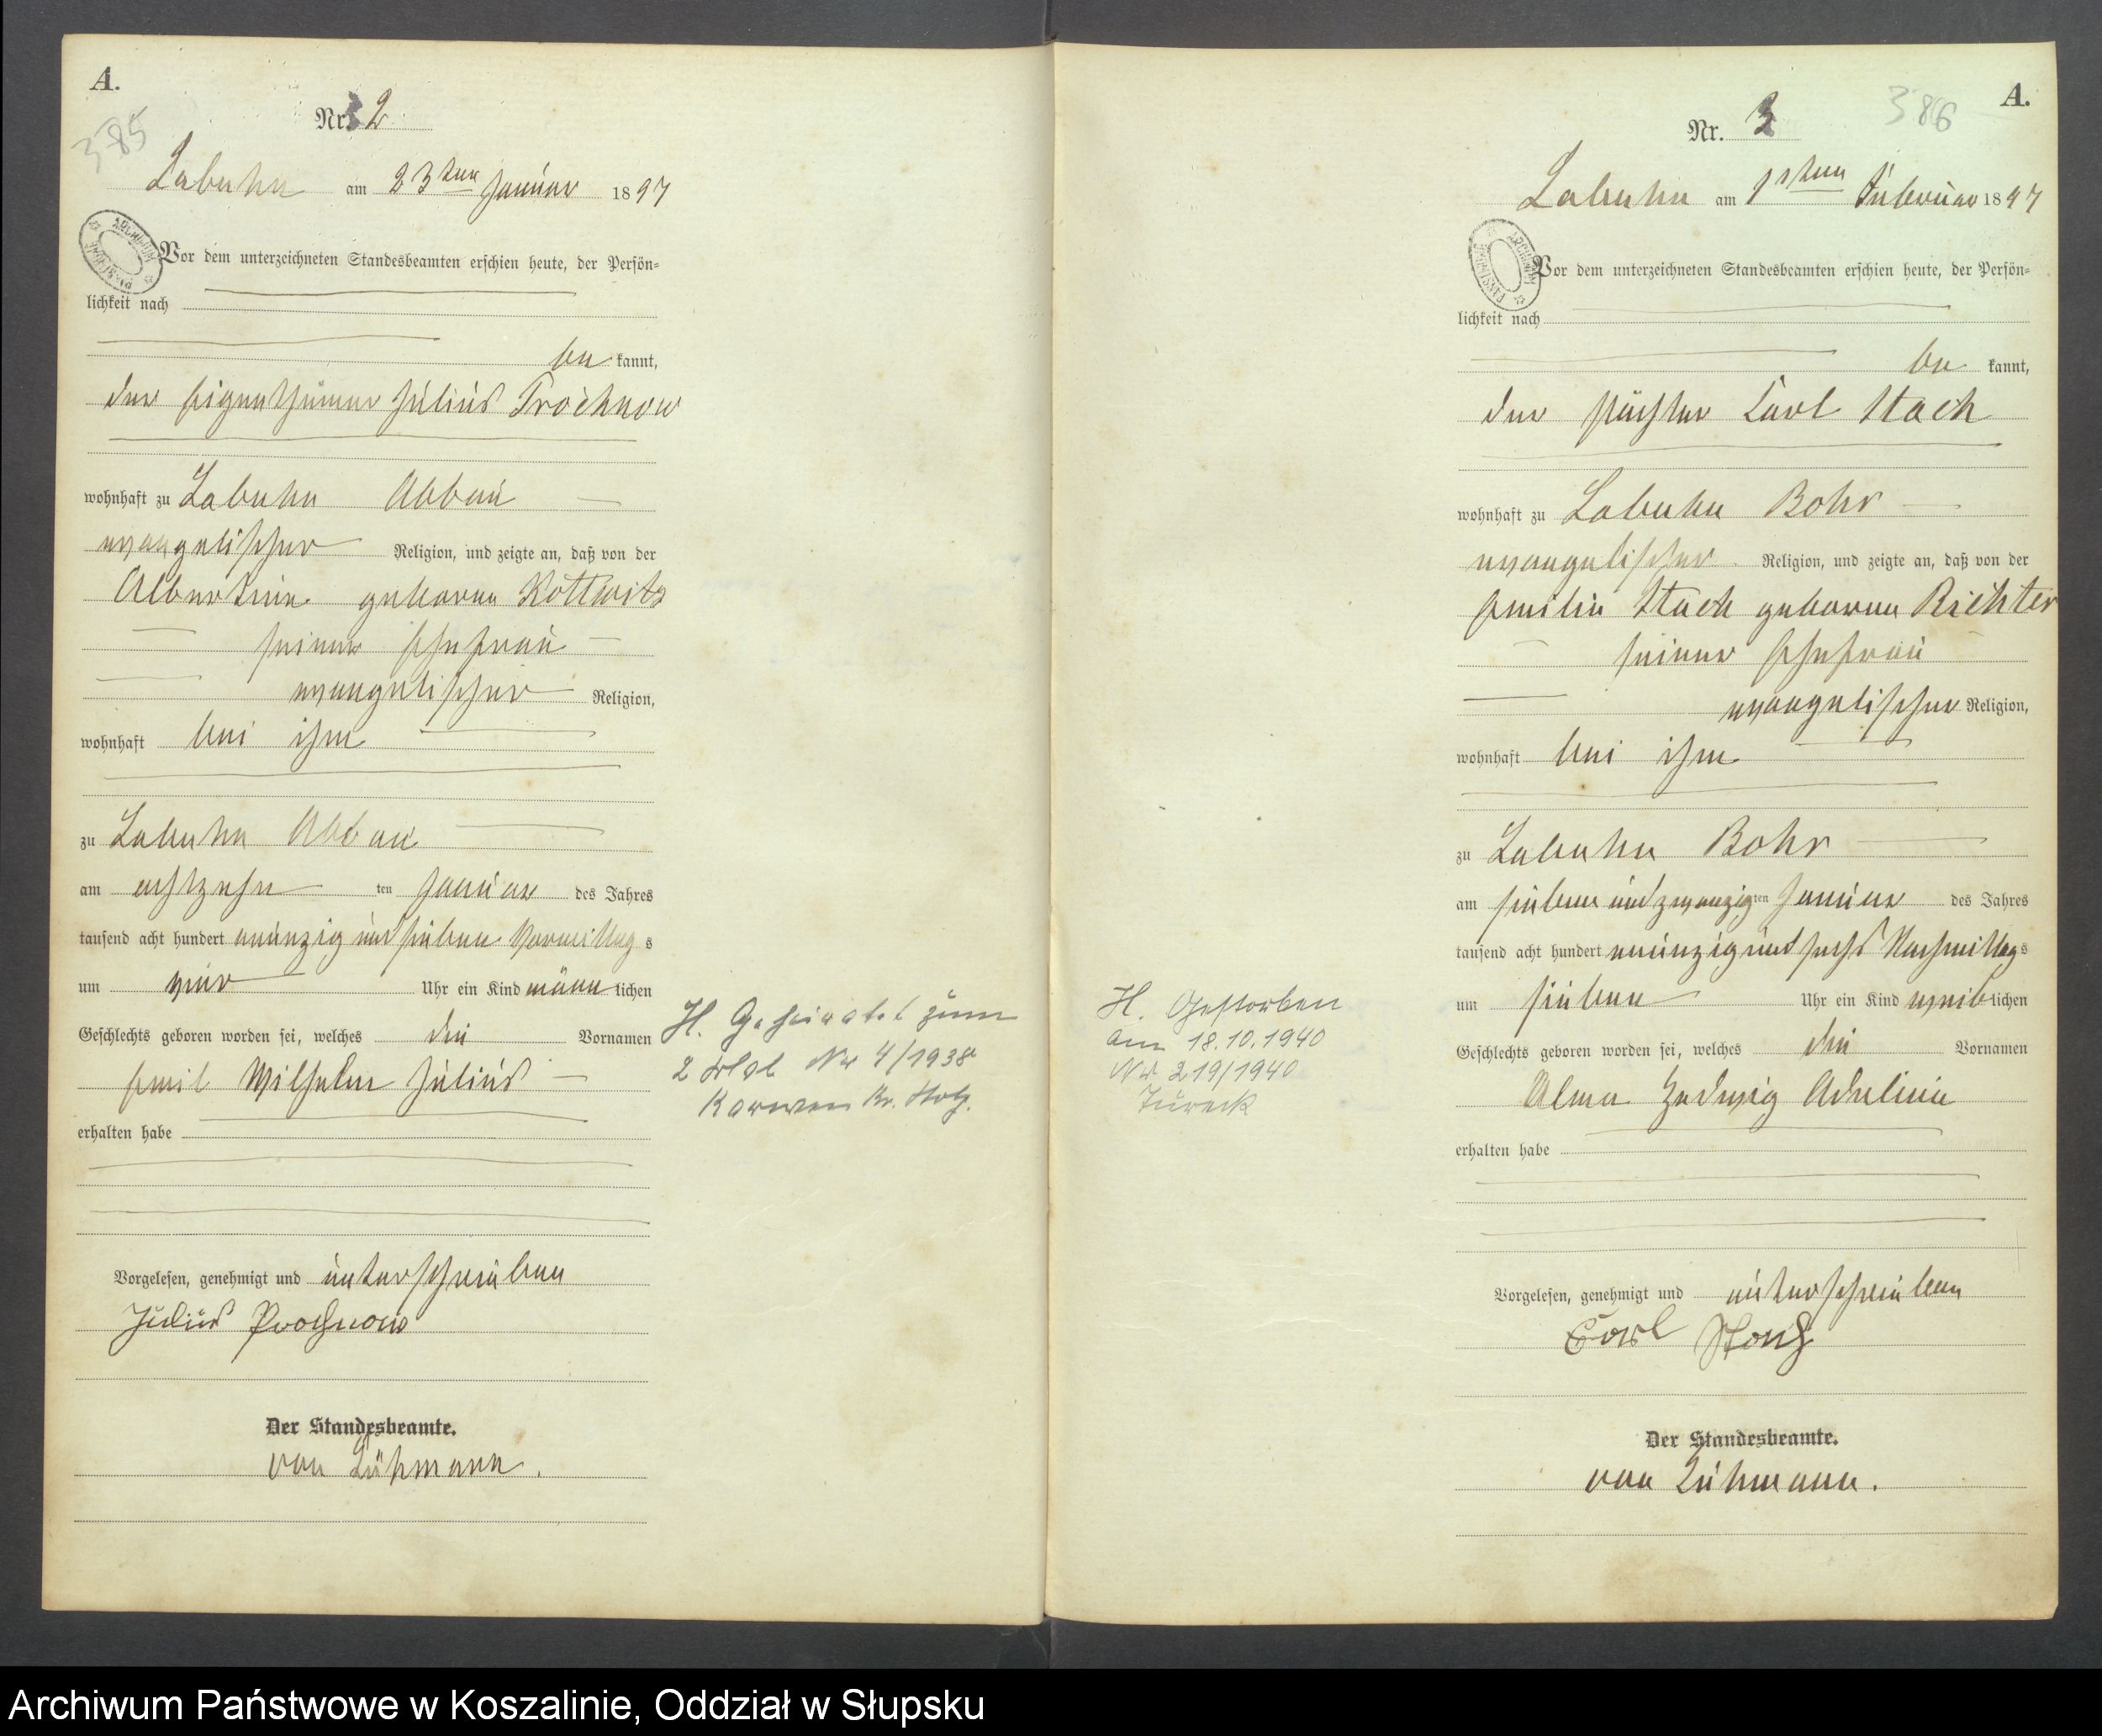 A.
385
Nr. 2
Labuhn am 23ten Januar 1897
Vor dem unterzeichneten Standesbeamten erschien heute, der Persön=
lichkeit nach
be kannt,
der Eigenthümer Julius Prochnow
wohnhaft zu Labuhn Abbau
evangelischer Religion, und zeigte an, daß von der
Albertine geborene Kottwitz
seiner Ehefrau
evangelischer Religion,
wohnhaft bei ihm
zu Labuhn Abbau
am achtzehn ten Januar des Jahres
tausend acht hundert neunzig und sieben Vormittag s
um vier Uhr ein Kind männ lichen
Geschlechts geboren worden sei, welches die Vornamen
Emil Wilhelm Julius
erhalten habe
Vorgelesen, genehmigt und unterschrieben
Julius Prochnow
Der Standesbeamte.
von Lühmann.
H. Geheiratet zum
2 Nr 4/1938
Karwen Kr. Stolp.
A.
386
Nr. 3
Labuhn am 1sten Februar 1897
Vor dem unterzeichneten Standesbeamten erschien heute, der Persön=
lichkeit nach
be kannt,
der Pächter Carl Stach
wohnhaft zu Labuhn Bohr
evangelischer Religion, und zeigte an, daß von der
Emilie Stach geborene Richter
seiner Ehefrau
evangelischer Religion,
wohnhaft bei ihm
zu Labuhn Bohr
am sieben und zwanzig ten Januar des Jahres
tausend acht hundert neunzig und sechs Nachmittag s
um sieben Uhr ein Kind weib lichen
Geschlechts geboren worden sei, welches die Vornamen
Alma Hedwig Adeline
erhalten habe
Vorgelesen, genehmigt und unterschrieben
Carl Stach
Der Standesbeamte.
von Lühmann.
H. Gestorben
am 18.10.1940
Nr 219/1940
Archiwum Państwowe w Koszalinie, Oddział w Słupsku